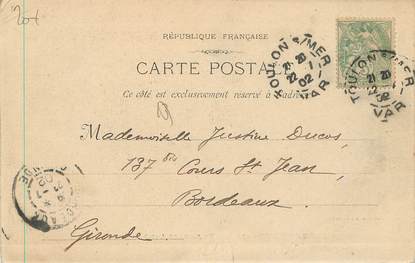 20f
RÉPUBLIQUE FRANÇAISE
CARTE POSTALE
Ce côté est exclusivement réservé à l'adresse
TOULON S/MER
VAR
Mademoiselle Justine Ducos,
137 bis Cours St Jean,
Bordeaux.
Gironde